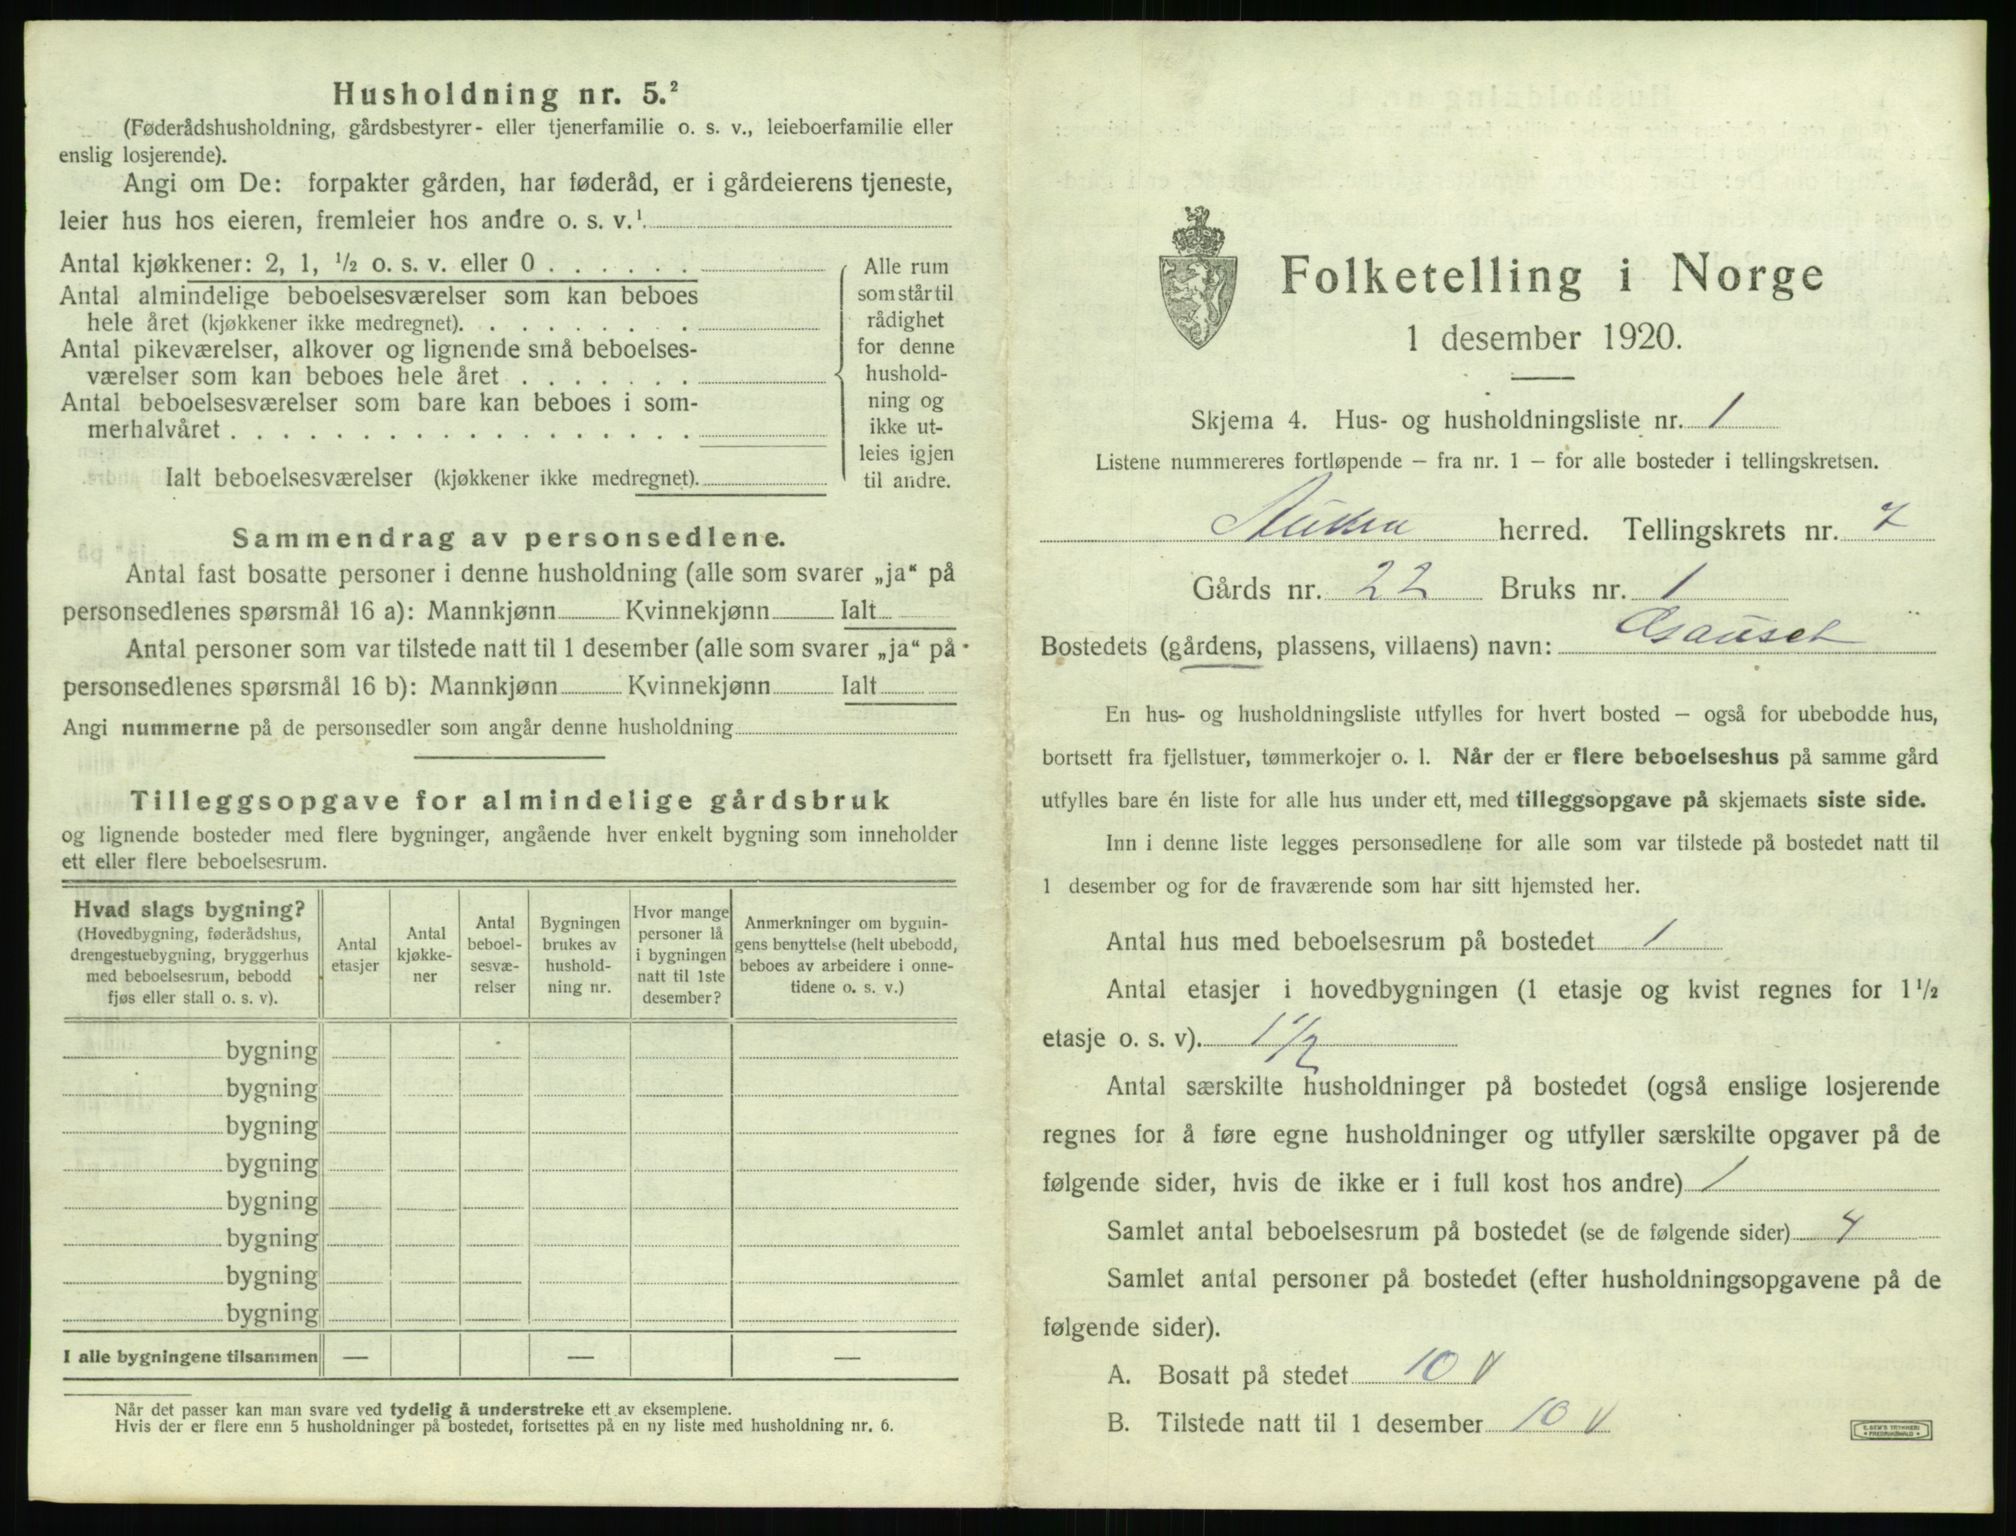 Husholdning nr. 5.²
(Føderådshusholdning, gårdsbestyrer- eller tjenerfamilie o. s. v., leieboerfamilie eller
enslig losjerende).
Angi om De: forpakter gården, har føderåd, er i gårdeierens tjeneste,
leier hus hos eieren, fremleier hos andre o. s. v.¹
Antal kjøkkener: 2, 1, ½ o. s. v. eller 0
Antal almindelige beboelsesværelser som kan beboes
hele året (kjøkkener ikke medregnet).
Antal pikeværelser, alkover og lignende små beboelses-
værelser som kan beboes hele året
Antal beboelsesværelser som bare kan beboes i som-
merhalvåret
Ialt beboelsesværelser (kjøkkener ikke medregnet).
Alle rum
som står til
rådighet
for denne
hushold-
ning og
ikke ut-
leies igjen
til andre.
Sammendrag av personsedlene.
Antal fast bosatte personer i denne husholdning (alle som svarer „ja“ på
personsedlenes spørsmål 16 a): Mannkjønn Kvinnekjønn Ialt
Antal personer som var tilstede natt til 1 desember (alle som svarer „ja“ på
personsedlenes spørsmål 16 b): Mannkjønn Kvinnekjønn Ialt
Angi nummerne på de personsedler som angår denne husholdning
Tilleggsopgave for almindelige gårdsbruk
og lignende bosteder med flere bygninger, angående hver enkelt bygning som inneholder
ett eller flere beboelsesrum.
Hvad slags bygning?
(Hovedbygning, føderådshus,
drengestuebygning, bryggerhus
med beboelsesrum, bebodd
fjøs eller stall o. s. v).
Antal
etasjer
Antal
kjøkke-
ner
Antal
beboel-
sesvæ-
relser
Bygningen
brukes av
hushold-
ning nr.
Hvor mange
personer lå
i bygningen
natt til 1ste
desember?
Anmerkninger om bygnin-
gens benyttelse (helt ubebodd,
beboes av arbeidere i onne-
tidene o. s. v.)
bygning
bygning
bygning
bygning
bygning
bygning
bygning
bygning
I alle bygningene tilsammen — — —
Når det passer kan man svare ved tydelig å understreke ett av eksemplene.
Hvis der er flere enn 5 husholdninger på bostedet, fortsettes på en ny liste med husholdning nr. 6.
Folketelling i Norge
1 desember 1920.
Skjema 4. Hus- og husholdningsliste nr. 1
Listene nummereres fortløpende – fra nr. 1 – for alle bosteder i tellingskretsen.
Aukra herred. Tellingskrets nr. 7
Gårds nr. 22 Bruks nr. 1
Bostedets (gårdens, plassens, villaens) navn:
En hus- og husholdningsliste utfylles for hvert bosted – også for ubebodde hus,
bortsett fra fjellstuer, tømmerkojer o. l. Når der er flere beboelseshus på samme gård
utfylles bare én liste for alle hus under ett, med tilleggsopgave på skjemaets siste side.
Inn i denne liste legges personsedlene for alle som var tilstede på bostedet natt til
1 desember og for de fraværende som har sitt hjemsted her.
Antal hus med beboelsesrum på bostedet 1
Antal etasjer i hovedbygningen (1 etasje og kvist regnes for 1½
etasje o. s. v). 1½
Antal særskilte husholdninger på bostedet (også enslige losjerende
regnes for å føre egne husholdninger og utfyller særskilte opgaver på de
følgende sider, hvis de ikke er i full kost hos andre) 1
Samlet antal beboelsesrum på bostedet (se de følgende sider) 4
Samlet antal personer på bostedet (efter husholdningsopgavene på de
følgende sider).
A. Bosatt på stedet 10 V
B. Tilstede natt til 1 desember 10 V